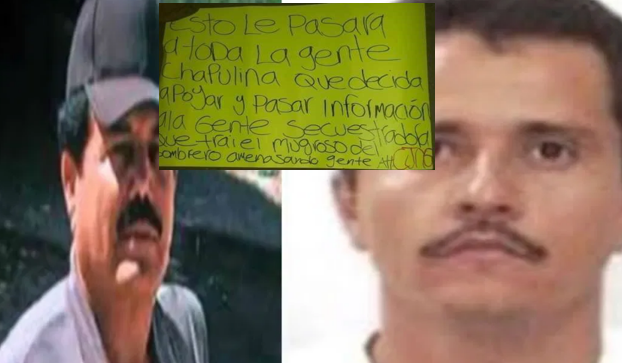 Esto Le Pasara
a toda La gente
chapulina que decida
apoyar y pasar informacion
ala Gente secuestradora
que trai el mugroso del
sombrero amenasando gente Att